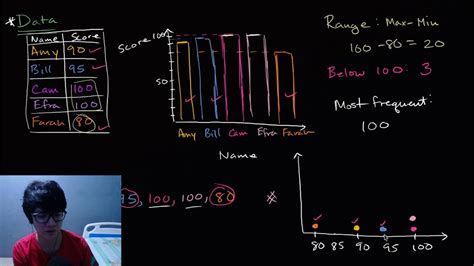 * Data
Name Score
Amy 90
Bill 95
Cam 100
Efra 100
Farah 80
Score
100
50
Amy Bill Cam Efra Farah
Name
Range : Max-Min
100 -80 = 20
Below 100: 3
Most frequent:
100
95, 100, 100, 80
80 85 90 95 100